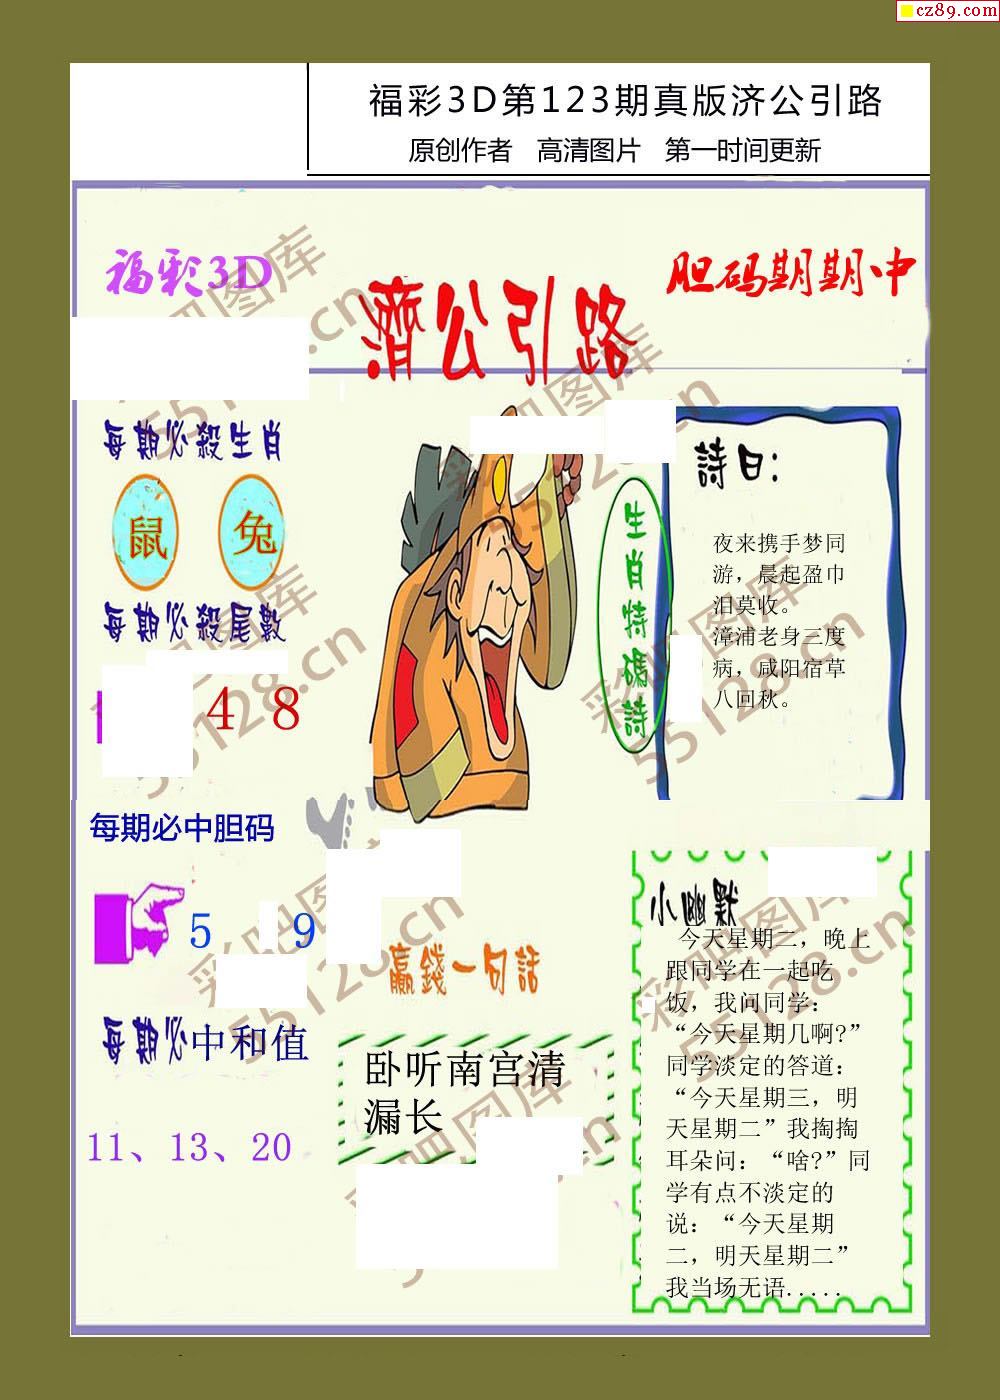 cz89.com
福彩3D第123期真版济公引路
原创作者 高清图片 第一时间更新
福彩3D
胆码期期中
濟公引路
每期必殺生肖
鼠 兔
每期必殺尾數
4 8
生肖特碼詩
詩曰：
夜来携手梦同
游，晨起盈巾
泪莫收。
漳浦老身三度
病，咸阳宿草
八回秋。
每期必中胆码
5 9
每期必中和值
11、13、20
赢錢一句話
卧听南宫清
漏长
小幽默
今天星期二，晚上
跟同学在一起吃
饭，我问同学：
“今天星期几啊?”
同学淡定的答道：
“今天星期三，明
天星期二”我掏掏
耳朵问：“啥?”同
学有点不淡定的
说：“今天星期
二，明天星期二”
我当场无语.....
彩吧图库
55128.cn